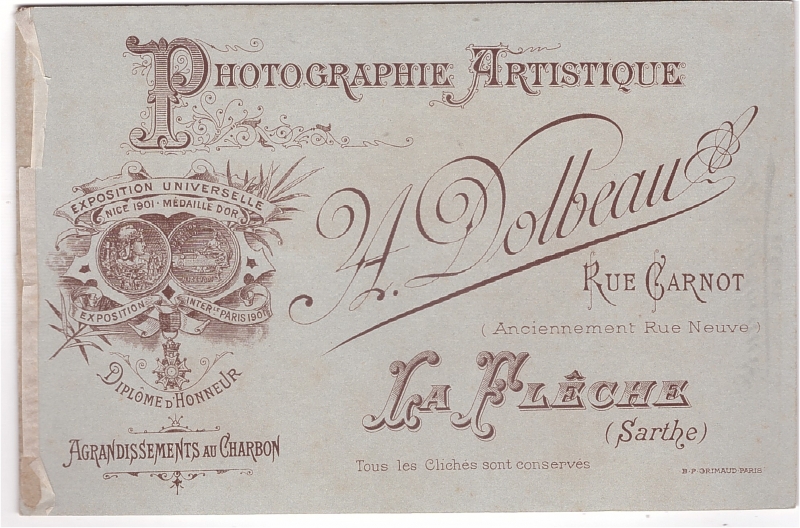 PHOTOGRAPHIE ARTISTIQUE
EXPOSITION UNIVERSELLE
NICE 1901 · MÉDAILLE D'OR
EXPOSITION INTERLE PARIS 1901
DIPLÔME D'HONNEUR
AGRANDISSEMENTS AU CHARBON
A. Dolbeau
RUE CARNOT
(Anciennement Rue Neuve)
LA FLÊCHE
(Sarthe)
Tous les Clichés sont conservés
B-P-GRIMAUD-PARIS